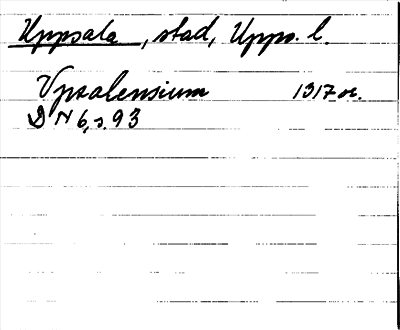 Uppsala, stad, Upps. l.
Vpsalensium 1317 or.
D N 6, s. 93